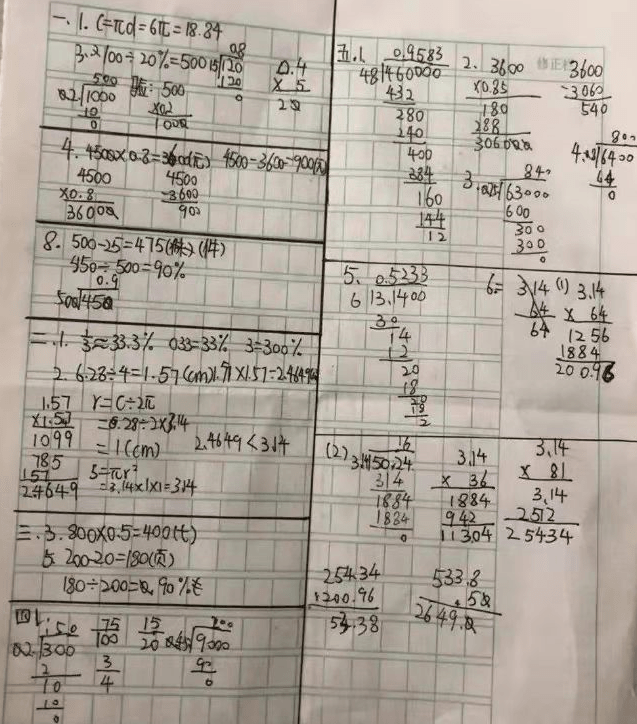 一、1. C=πd=6π=18.84
3. 2100÷20%=500
0.8
15)120
120
0
0.4
× 5
20
500
0.2)1000
10
0
验: 500
×0.2
1000
4. 4500×0.8=3600(元) 4500-3600=900(元)
4500
×0.8
36000
4500
-3600
900
8. 500-25=475 (件)
450÷500=90%
0.9
500)450
二、1. 1/3≈33.3% 0.33=33% 3=300%
2. 6.28÷4=1.57(cm) 1.57×1.57=2.4649
1.57
×1.57
1099
785
157
24649
r=C÷2π
=6.28÷2×3.14
=1(cm)
S=πr²
=3.14×1×1=3.14
2.4649<3.14
三、3. 800×0.5=400(七)
5. 200-20=180(页)
180÷200=0.90%
四1.
150
0.2)300
2
10
10
0
75
100
3
4
15
20
200
0.45)9000
90
0
五、1.
0.9583
48)460000
432
280
240
400
384
160
144
12
2. 3600
×0.85
180
288
306000
3600
-3060
540
3.
840
0.75)63000
600
300
300
0
4.
800
)6400
64
0
5. 0.5233
6)3.1400
30
14
12
20
18
20
18
2
6.
3.14
64
64
(1) 3.14
× 64
1256
1884
200.96
(2)
16
3.14)50.24
314
1884
1884
0
3.14
× 36
1884
942
11304
3.14
× 81
3.14
2512
25434
254.34
200.96
53.38
533.8
50
2649.0